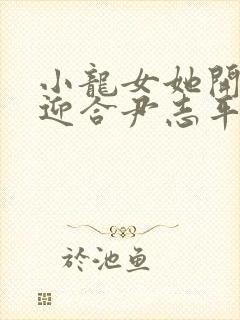 小龍女她開
迎合尹志平
於池魚